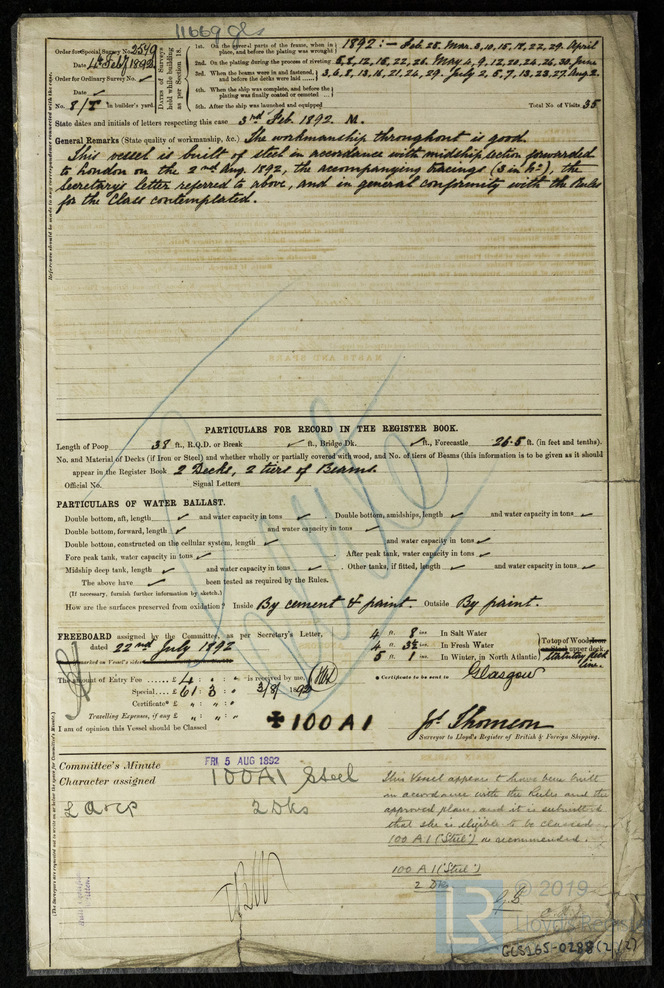 11669 Gls
Order for Special Survey No. 2549
Date 4th Feby 1892
Order for Ordinary Survey No. ✓
Date ✓
No. 8/T in builder's yard.
Dates of Surveys held while building as per Section 18.
1st. On the several parts of the frame, when in place, and before the plating was wrought
1892:— Feb. 25. Mar. 3, 10, 15, 18, 22, 29. April
2nd. On the plating during the process of riveting
12, 15, 22, 26. May 4, 9, 12, 20, 24, 26, 30. June
3rd. When the beams were in and fastened, and before the decks were laid
3, 6, 8, 13, 16, 21, 24, 29. July 2, 5, 7, 13, 23, 27. Aug 2.
4th. When the ship was complete, and before the plating was finally coated or cemented
5th. After the ship was launched and equipped
Total No. of Visits 35
State dates and initials of letters respecting this case 3rd Feb. 1892. M.
General Remarks (State quality of workmanship, &c.) The workmanship throughout is good.
This vessel is built of steel in accordance with midship section forwarded
to London on the 2nd Aug. 1892, the accompanying tracings (3 in No), the
Secretary's letter referred to above, and in general conformity with the Rules
for the Class contemplated.
PARTICULARS FOR RECORD IN THE REGISTER BOOK.
Length of Poop 38 ft., R.Q.D. or Break ✓ ft., Bridge Dk. ✓ ft., Forecastle 26.5 ft. (in feet and tenths).
No. and Material of Decks (if Iron or Steel) and whether wholly or partially covered with wood, and No. of tiers of Beams (this information is to be given as it should
appear in the Register Book 2 Decks, 2 tiers of Beams.
Official No. Signal Letters
PARTICULARS OF WATER BALLAST.
Double bottom, aft, length ✓ and water capacity in tons ✓ . Double bottom, amidships, length ✓ and water capacity in tons ✓
Double bottom, forward, length ✓ and water capacity in tons ✓
Double bottom, constructed on the cellular system, length ✓ and water capacity in tons ✓
Fore peak tank, water capacity in tons ✓ . After peak tank, water capacity in tons ✓
Midship deep tank, length ✓ and water capacity in tons ✓ . Other tanks, if fitted, length ✓ and water capacity in tons ✓
The above have ✓ been tested as required by the Rules.
(If necessary, furnish further information by sketch.)
How are the surfaces preserved from oxidation? Inside By cement & paint. Outside By paint.
FREEBOARD assigned by the Committee, as per Secretary's Letter,
dated 22nd July 1892
4 ft. 8 ins. In Salt Water
4 ft. 3½ ins. In Fresh Water
5 ft. 1 ins. In Winter, in North Atlantic
To top of Wood upper deck
Statutory deck line.
The amount of Entry Fee £ 4 : : is received by me,
Special £ 61 : 3 : 3/8/1892
Certificate* £ „ : „ :
Travelling Expenses, if any £ „ : „ :
* Certificate to be sent to Glasgow
I am of opinion this Vessel should be Classed ✠ 100 A 1
Jas. Thomson
Surveyor to Lloyd's Register of British & Foreign Shipping.
Committee's Minute FRI 5 AUG 1892
Character assigned 100A1 Steel
2 Dks
L a & c p
This Vessel appears to have been built
in accordance with the Rules and the
approved plans, and it is submitted
that she is eligible to be classed
100 A 1 ("Steel") as recommended.
100 A 1 ("Steel")
2 Dks
LR
© 2019
Lloyd's Register
GLS165-0288(2/2)